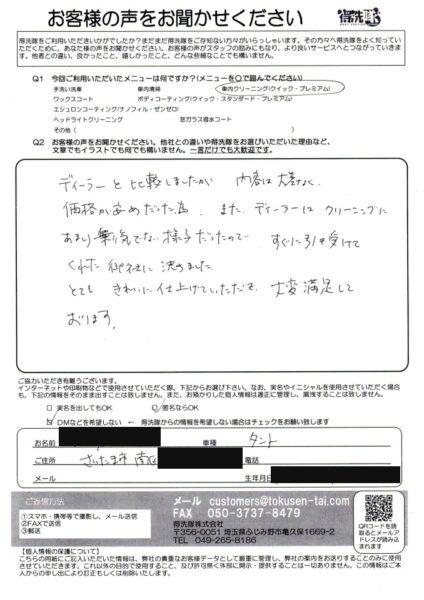 お客様の声をお聞かせください
得洗隊
得洗隊をご利用いただきいかがでしたか？まだまだ得洗隊をご存知ない方々がいらっしゃいます。その方々へ得洗隊をよく知って
いただくために、あなた様の声をお聞かせください。お客様の声がスタッフの励みにもなり、より良いサービスへとつながっていきます。
他者との違い、良かったこと、嬉しかったこと、どんな些細なことでも構いません。
Q1 今回ご利用いただいたメニューは何ですか？(メニューを〇で囲んでください)
手洗い洗車 車内清掃 車内クリーニング(クイック・プレミアム)
ワックスコート ボディコーティング(クイック・スタンダード・プレミアム)
エシュロンコーティング(ナノフィル・ゼンゼロ)
ヘッドライトクリーニング 窓ガラス撥水コート
その他(
Q2 お客様の声をお聞かせください。他社との違いや得洗隊をお選びいただいた理由など、
文章でもイラストでも何でも構いません。一言だけでも大歓迎です。
ディーラーと比較しましたが 内容は大差なく
価格が安めだった為、また、ディーラーはクリーニングに
あまり乗り気でない様子だったので すぐに引き受けて
くれた御社に決めました。
とても きれいに仕上げていただき、大変満足して
おります。
ご協力いただき有難うございます。
インターネットや印刷物などで使用させていただく際、下記からお選び下さい。なお、実名やイニシャルを使用させていただく場合
も、下記の情報をそのまま出すことは致しません。また、お預かりした個人情報は適正に管理し、漏洩することは致しません。
□ 実名を出してもOK ☑ 匿名ならOK
☑ DMなどを希望しない ← 得洗隊からの情報を希望しない場合はチェックをお願い致します
お名前 車種 タント
ご住所 さいたま市 南区
メール 生年月日
ご返信方法
①スマホ・携帯等で撮影し、メール送信
②FAXで送信
③郵送
メール customers@tokusen-tai.com
FAX 050-3737-8479
得洗隊株式会社
〒356-0051 埼玉県ふじみ野市亀久保1669-2
TEL 049-265-8186
QRコードを読
取るとメールア
ドレスが読み込
まれます
【個人情報の保護について】
こちらの用紙にご記入いただいた情報は、弊社の貴重なお客様データとして厳重に管理し、弊社の案内をお送りすることのみに使用
させていただきます。これ以外の目的で使用すること、及び許可無く外部に開示・提供することは一切ありません。この情報はご本
人からの申し出により訂正もしくは削除いたします。